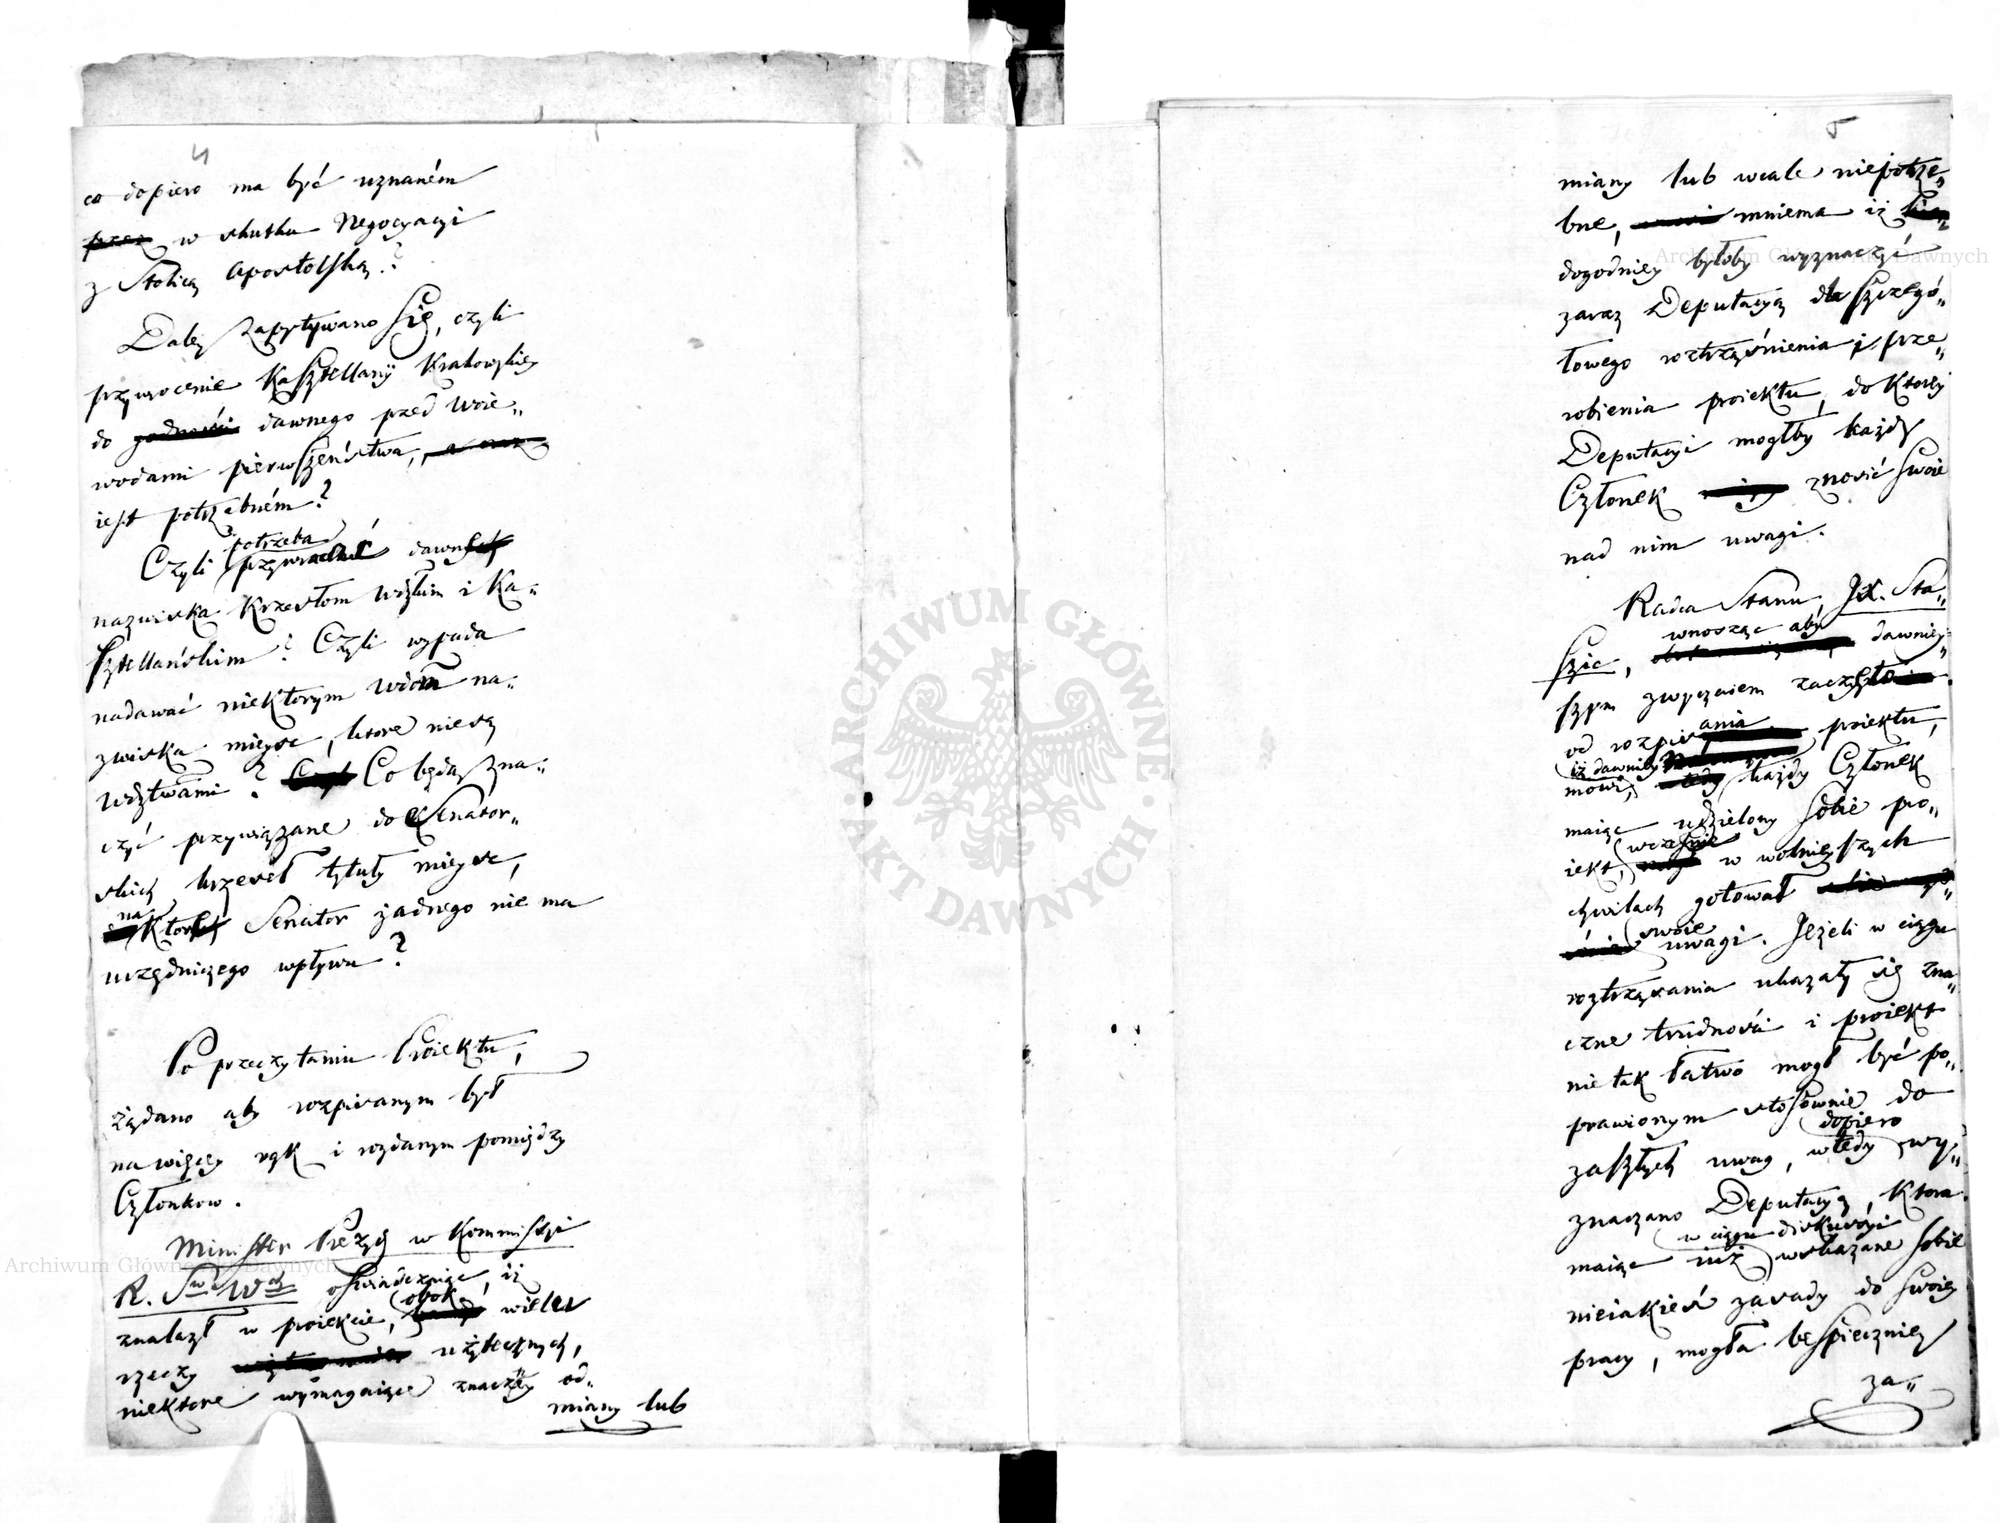 4
co dopiero ma być uznaném
przez w skutku Negocyacyi
z Stolicą Apostolską?
Daley zapytywano się, czyli
przywrocenie Kasztellanii Krakowskiey
do godności dawnego przed Woie„
wodami pierwszeństwa, a oraz
iest potrzebném?
potrzeba
Czyli przywracać dawne
nazwiska Krzesłom Wdztwm i Ka„
sztellańskim? Czyli wypada
nadawać niektorym Wdom na„
zwiska mieysc, ktore nie są
Wdztwami? Czyli Co będą zna„
czyć przywiązane do Senator„
skich krzeseł tytuły mieysc,
na
ktore Senator żadnego nie ma
urzędniczego wpływu?
Po przeczytaniu Proiektu,
żądano aby rozpisanym był
na więcey rąk i rozdanym pomiędzy
Członkow.
Minister Prezyd. w Kommissyi
R. Sw. W. oświadczaiąc, iż
obok
znalazł w proiekcie, wielu
rzeczy użytecznych,
niektore wymagaiące znaczney od„
miany lub
5
miany lub wcale niepotrze„
bne, mniema iż
dogodniey byłoby wyznaczyć
zaraz Deputacyą dla szczegó„
łowego roztrząśnienia i prze„
robienia proiektu, do ktorey
Deputacyi mogłby każdy
Członek znosić swoie
nad nim uwagi.
Radca Stanu, JX. Sta„
wnosząc aby
szic, dawniey„
szym zwyczaiem zacząć
od rozpisania proiektu,
iż dawniey
mowi, każdy Członek
maiąc udzielony sobie pro„
wcześnie
iekt, w wolnieyszych
chwilach gotował
swoie
uwagi. Jeżeli w ciągu
roztrząsania ukazały się zna„
czne trudności i proiekt
nie tak łatwo mogł być po„
prawionym stosownie do
dopiero
zaszłych uwag, wtedy wy„
znaczano Deputacyą, ktora
w ciągu dyskussyi
maiąc iuż wskazane sobie
nieiakieś zasady do swoiey
pracy, mogła bespieczniey
za„
ARCHIWUM GŁÓWNE
AKT DAWNYCH
Archiwum Główne Akt Dawnych
Archiwum Główne Akt Dawnych